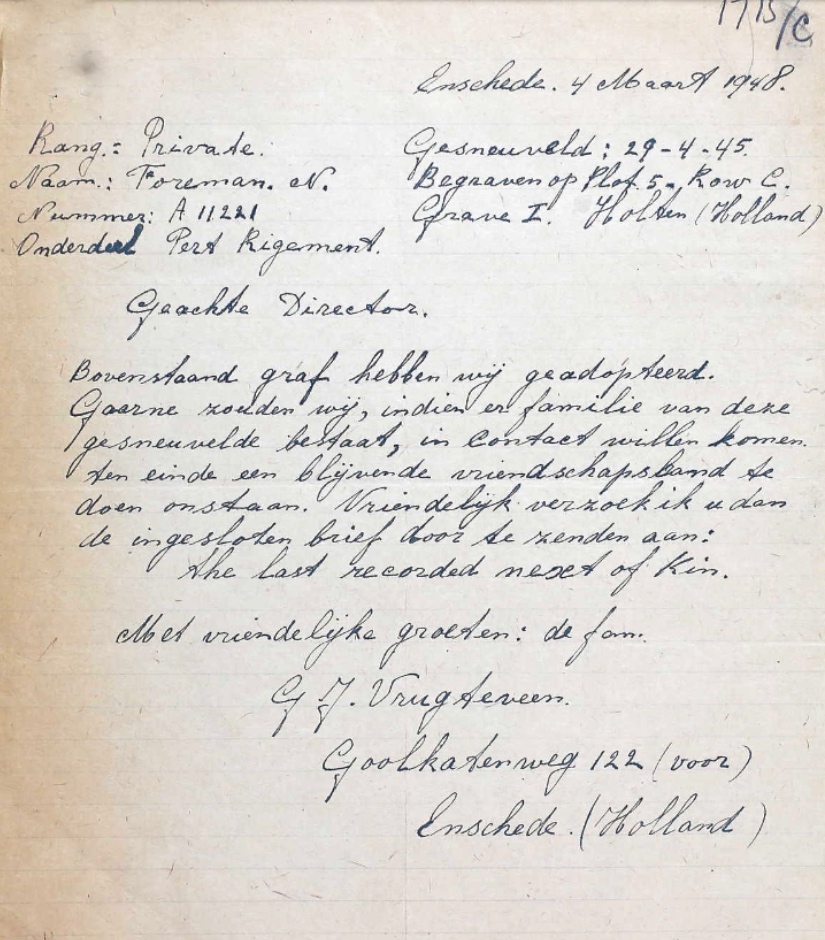 1715/C
Enschede. 4 Maart 1948.
Rang.: Private. Gesneuveld: 29-4-45.
Naam.: Foreman. N. Begraven op Plot. 5-, Row C.
Nummer: A 11221 Grave I. Holten (Holland)
Onderdeel Pert Rigement.
Geachte Director.
Bovenstaand graf hebben wij geadopteerd.
Gaarne zouden wij, indien er familie van deze
gesneuvelde bestaat, in contact willen komen
ten einde een blijvende vriendschapsband te
doen onstaan. Vriendelijk verzoek ik u dan
de ingesloten brief door te zenden aan:
the last recorded next of Kin.
Met vriendelijke groeten: de fam.
G J. Vrugteveen.
Goolkatenweg 122 (voor)
Enschede. (Holland)